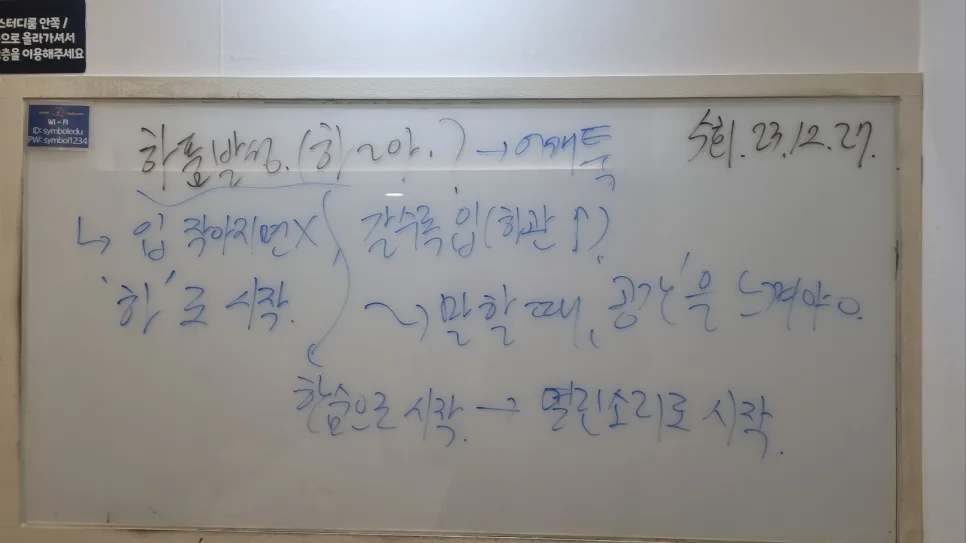 스터디룸 안쪽 /
으로 올라가셔서
층을 이용해주세요
WI-FI
ID: symboledu
PW: symbol1234
하품발성. (하~아.) → 어깨툭
수희. 23.12.27.
↳ 입 작아지면X
갈수록 입(하관↑).
'하'로 시작.
↝ 말할 때, '공간'을 느껴야 o.
한숨으로 시작. → 열린소리로 시작.